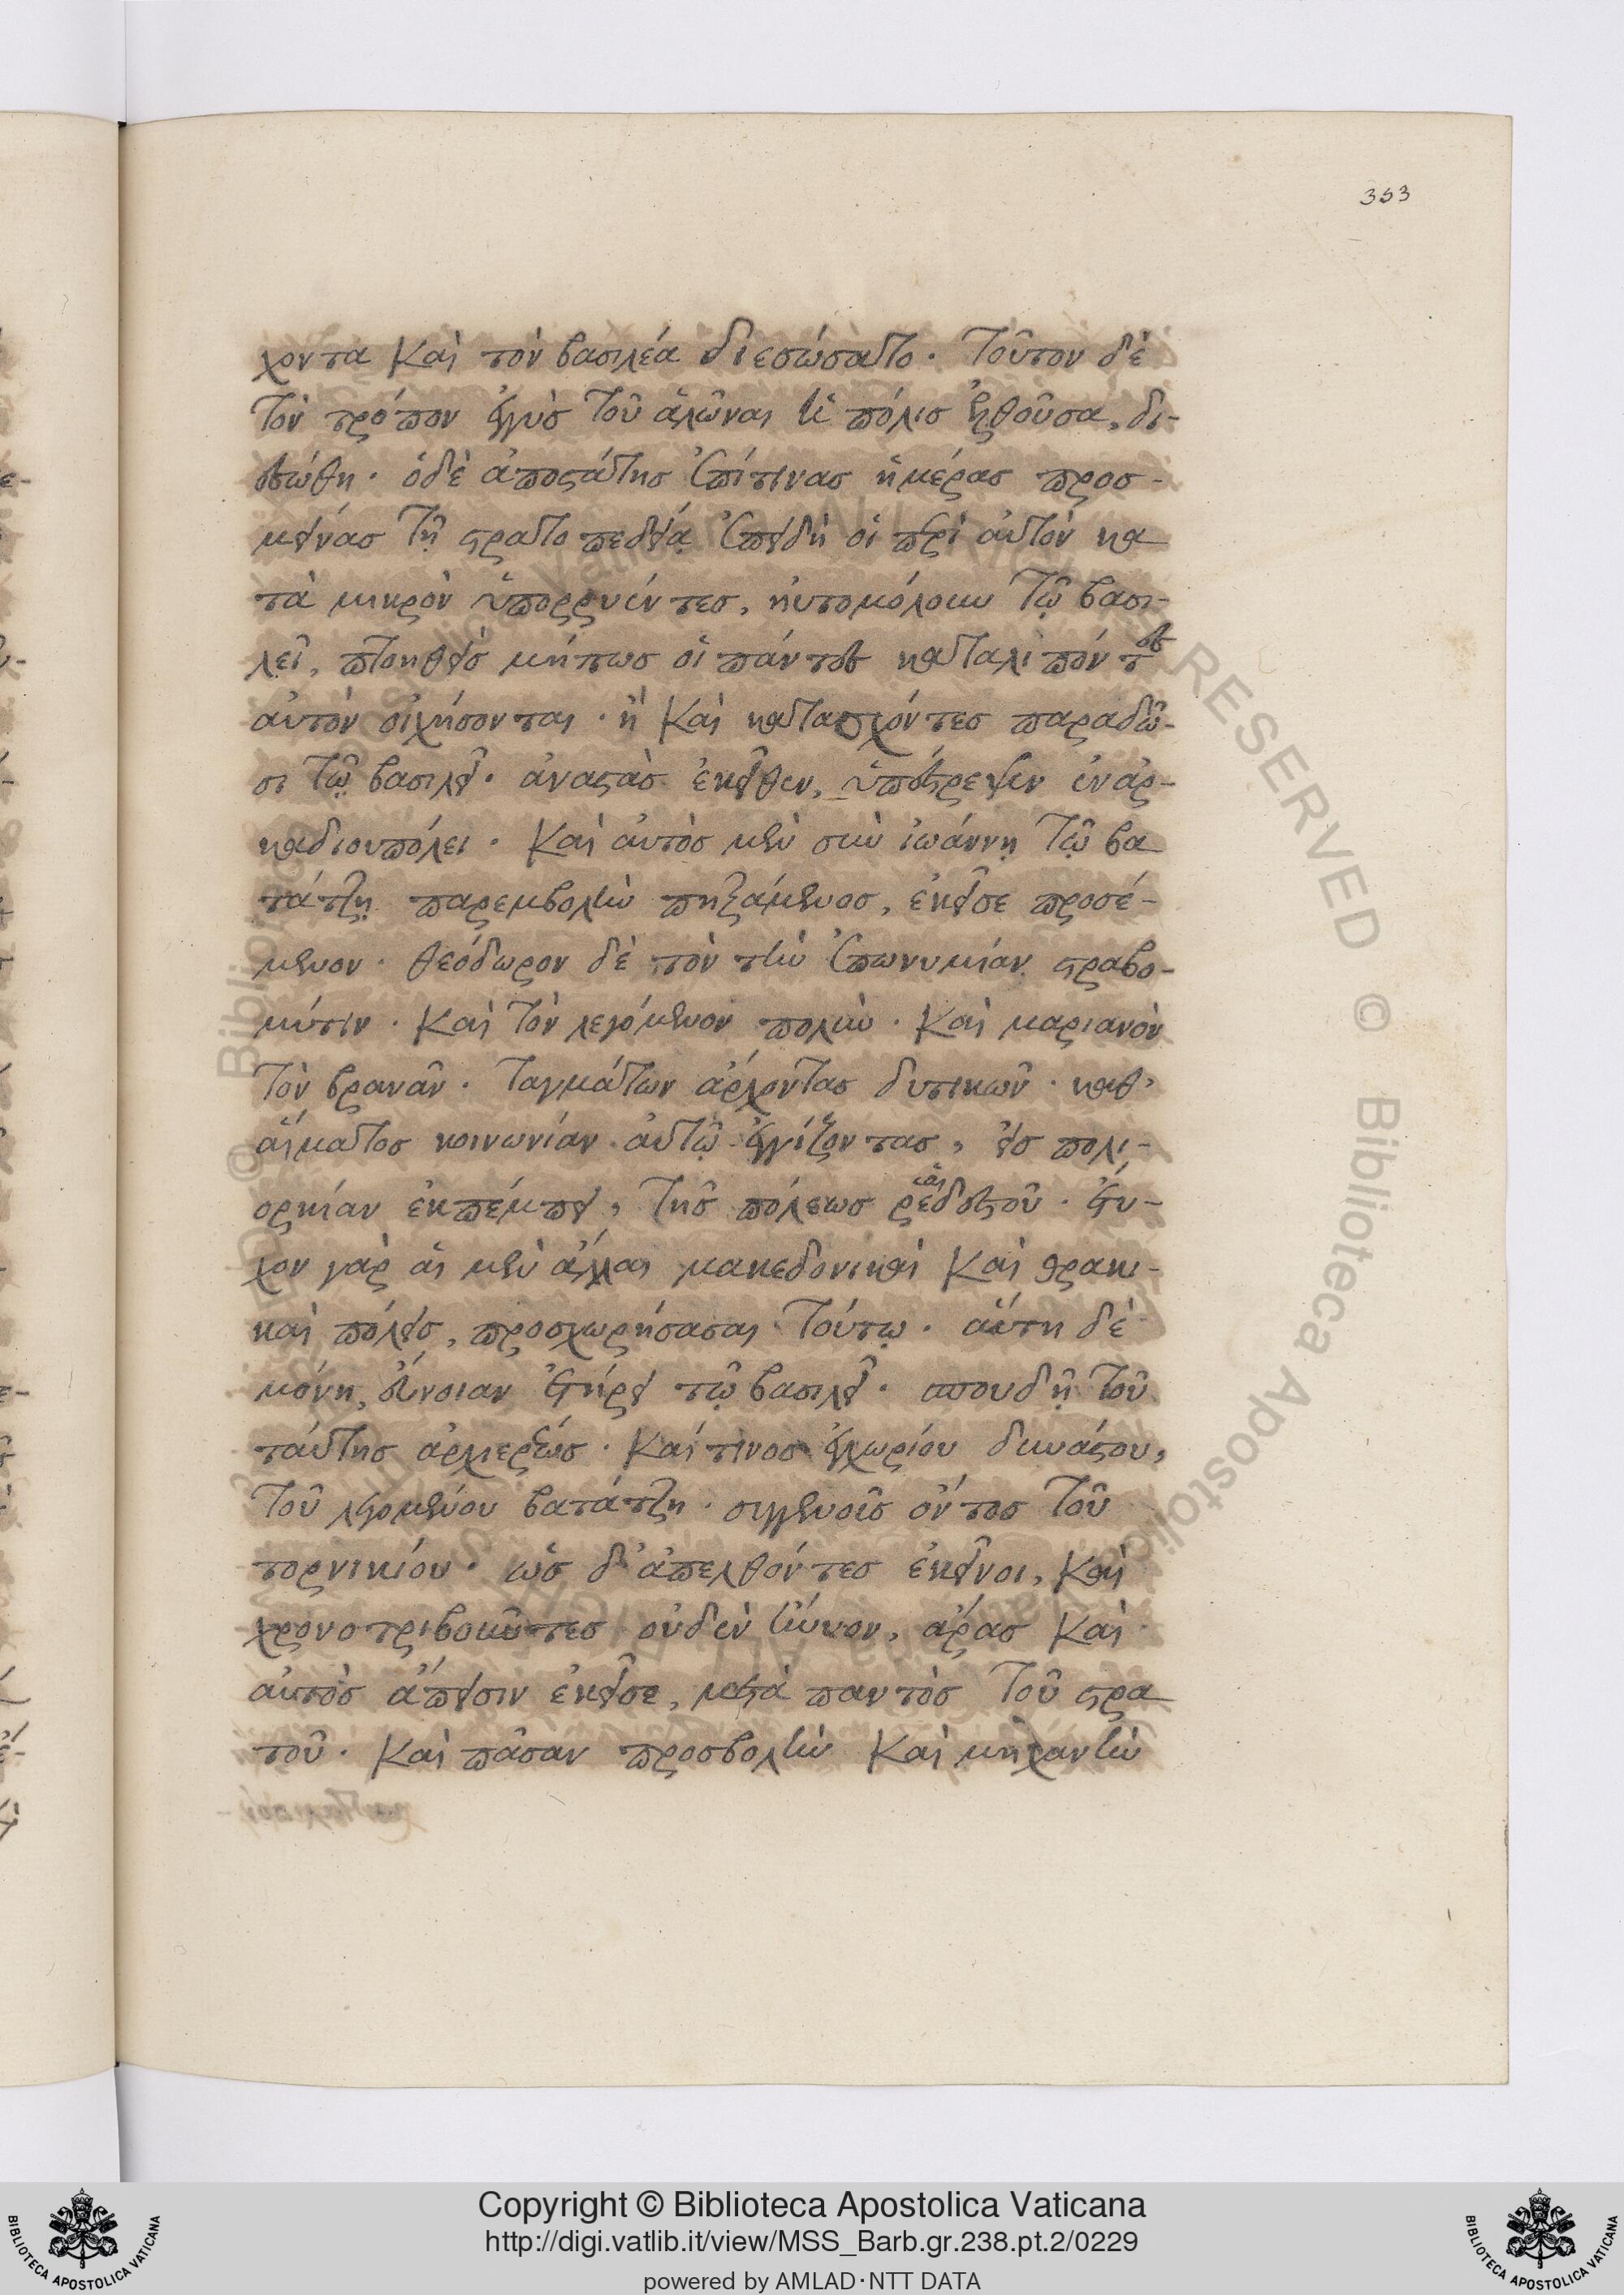 353
χοντα καὶ τὸν βασιλέα διεσώσατο. τοῦτον δὲ
τὸν τρόπον ἐγγὺς τοῦ ἁλῶναι ἡ πόλις ἐλθοῦσα, δι-
εσώθη. ὁ δὲ ἀποστάτης ἐπί τινας ἡμέρας προσ-
μείνας τῇ στρατοπεδείᾳ ἐπειδὴ οἱ περὶ αὐτὸν κα
τὰ μικρὸν ὑπορρυέντες, ηὐτομόλουν τῷ βασι-
λεῖ, πτοηθεὶς μήπως οἱ πάντες καταλιπόντες
αὐτὸν οἰχήσονται. ἢ καὶ κατασχόντες παραδῶ-
σι τῷ βασιλεῖ. ἀναστὰς ἐκεῖθεν, ὑπέστρεψεν ἐν ἀρ-
καδιουπόλει. καὶ αὐτὸς μὲν σὺν ἰωάννῃ τῷ βα
τάτζῃ παρεμβολὴν πηξάμενος, ἐκεῖσε προσέ-
μενον. θεόδωρον δὲ τὸν τὴν ἐπωνυμίαν στραβο-
μύτην. καὶ τὸν λεγόμενον πολὺν. καὶ μαριανὸν
τὸν βρανᾶν. ταγμάτων ἄρχοντας δυτικῶν. καθ'
αἵματος κοινωνίαν αὐτῷ ἐγγίζοντας, εἰς πολι-
ορκίαν ἐκπέμπει, τῆς πόλεως ῥαιδεστοῦ. ἔτυ-
χον γὰρ αἱ μὲν ἄλλαι μακεδονικαὶ καὶ θρακι-
καὶ πόλεις, προσχωρήσασαι τούτῳ. αὕτη δὲ
μόνη, εὔνοιαν ἐτήρει τῷ βασιλεῖ. σπουδῇ τοῦ
ταύτης ἀρχιερέως. καί τινος ἐγχωρίου δυνάστου,
τοῦ λεγομένου βατάτζη. συγγενοῖς ὄντος τοῦ
τορνικίου. ὡς δ' ἀπελθόντες ἐκεῖνοι, καὶ
χρονοτριβοῦντες οὐδὲν ἤνυον, ἄρας καὶ
αὐτὸς ἄπεισιν ἐκεῖσε, μετὰ παντὸς τοῦ στρα
τοῦ. καὶ πᾶσαν προσβολὴν καὶ μηχανὴν
Copyright © Biblioteca Apostolica Vaticana
http://digi.vatlib.it/view/MSS_Barb.gr.238.pt.2/0229
powered by AMLAD·NTT DATA
BIBLIOTECA APOSTOLICA VATICANA
BIBLIOTECA APOSTOLICA VATICANA